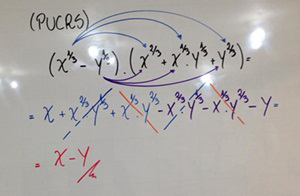 (PUCRS)
(x^{1/3} - y^{1/3}) . (x^{2/3} + x^{1/3} . y^{1/3} + y^{2/3}) =
= x + x^{2/3} . y^{1/3} + x^{1/3} . y^{2/3} - x^{2/3} . y^{1/3} - x^{1/3} . y^{2/3} - y =
= x - y //